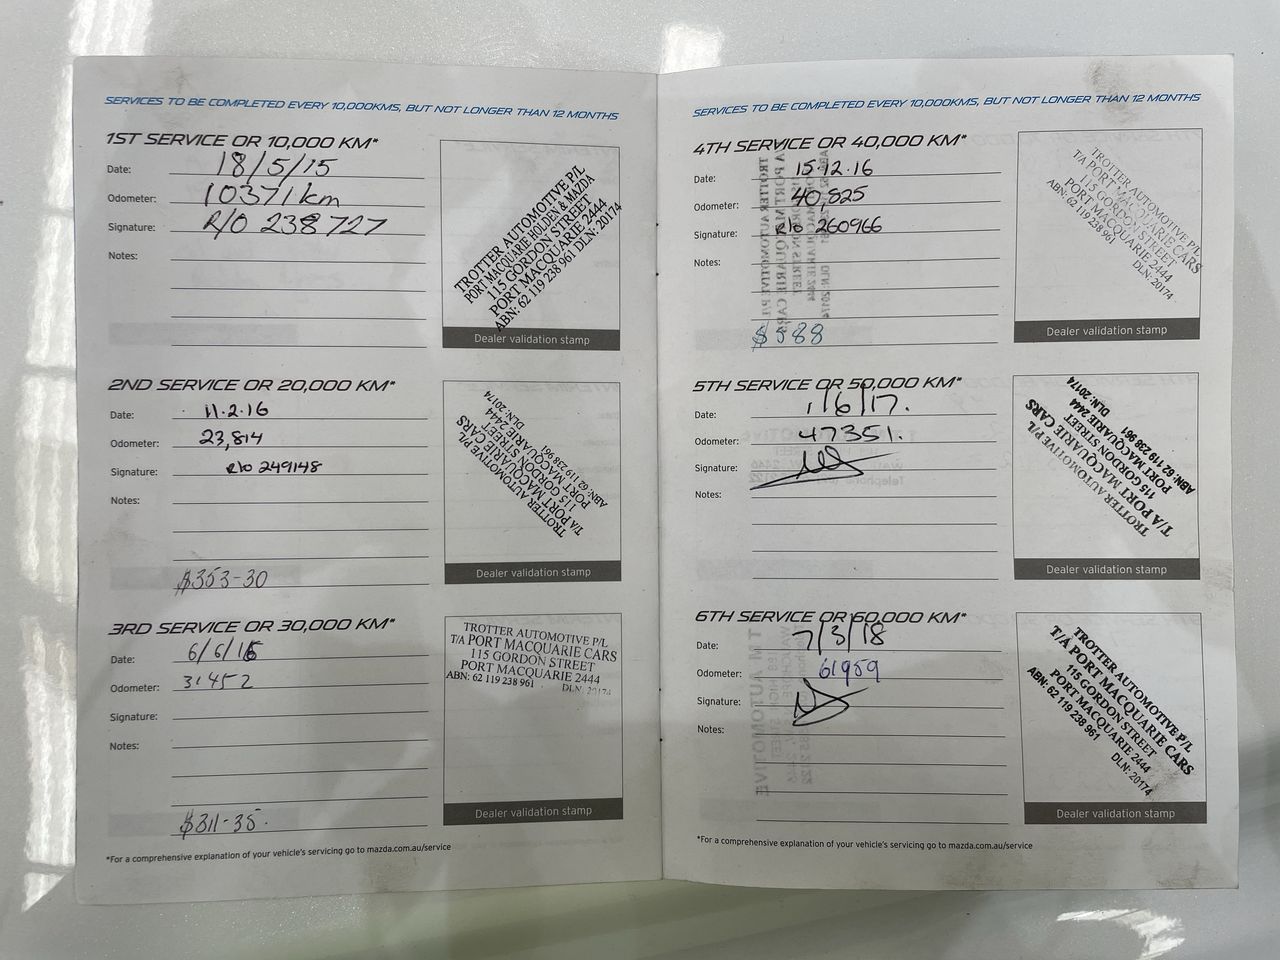 SERVICES TO BE COMPLETED EVERY 10,000KMS, BUT NOT LONGER THAN 12 MONTHS
1ST SERVICE OR 10,000 KM*
Date: 18/5/15
Odometer: 10371km
Signature: R/O 238727
Notes:
TROTTER AUTOMOTIVE P/L
PORT MACQUARIE HOLDEN & MAZDA
115 GORDON STREET
PORT MACQUARIE 2444
ABN: 62 119 238 961 DLN: 20174
Dealer validation stamp
2ND SERVICE OR 20,000 KM*
Date: 11.2.16
Odometer: 23,814
Signature: R/O 249148
Notes:
$353-30
TROTTER AUTOMOTIVE P/L
T/A PORT MACQUARIE CARS
115 GORDON STREET
PORT MACQUARIE 2444
ABN: 62 119 238 961 DLN: 20174
Dealer validation stamp
3RD SERVICE OR 30,000 KM*
Date: 6/6/16
Odometer: 31452
Signature:
Notes:
$311-35.
TROTTER AUTOMOTIVE P/L
T/A PORT MACQUARIE CARS
115 GORDON STREET
PORT MACQUARIE 2444
ABN: 62 119 238 961 DLN: 20174
Dealer validation stamp
*For a comprehensive explanation of your vehicle's servicing go to mazda.com.au/service
SERVICES TO BE COMPLETED EVERY 10,000KMS, BUT NOT LONGER THAN 12 MONTHS
4TH SERVICE OR 40,000 KM*
Date: 15.12.16
Odometer: 40,825
Signature: R/O 260966
Notes:
$588
TROTTER AUTOMOTIVE P/L
T/A PORT MACQUARIE CARS
115 GORDON STREET
PORT MACQUARIE 2444
ABN: 62 119 238 961 DLN: 20174
Dealer validation stamp
5TH SERVICE OR 50,000 KM*
Date: 1/6/17.
Odometer: 47351.
Signature:
Notes:
TROTTER AUTOMOTIVE P/L
T/A PORT MACQUARIE CARS
115 GORDON STREET
PORT MACQUARIE 2444
ABN: 62 119 238 961 DLN: 20174
Dealer validation stamp
6TH SERVICE OR 60,000 KM*
Date: 7/3/18
Odometer: 61959
Signature:
Notes:
TROTTER AUTOMOTIVE P/L
T/A PORT MACQUARIE CARS
115 GORDON STREET
PORT MACQUARIE 2444
ABN: 62 119 238 961 DLN: 20174
Dealer validation stamp
*For a comprehensive explanation of your vehicle's servicing go to mazda.com.au/service